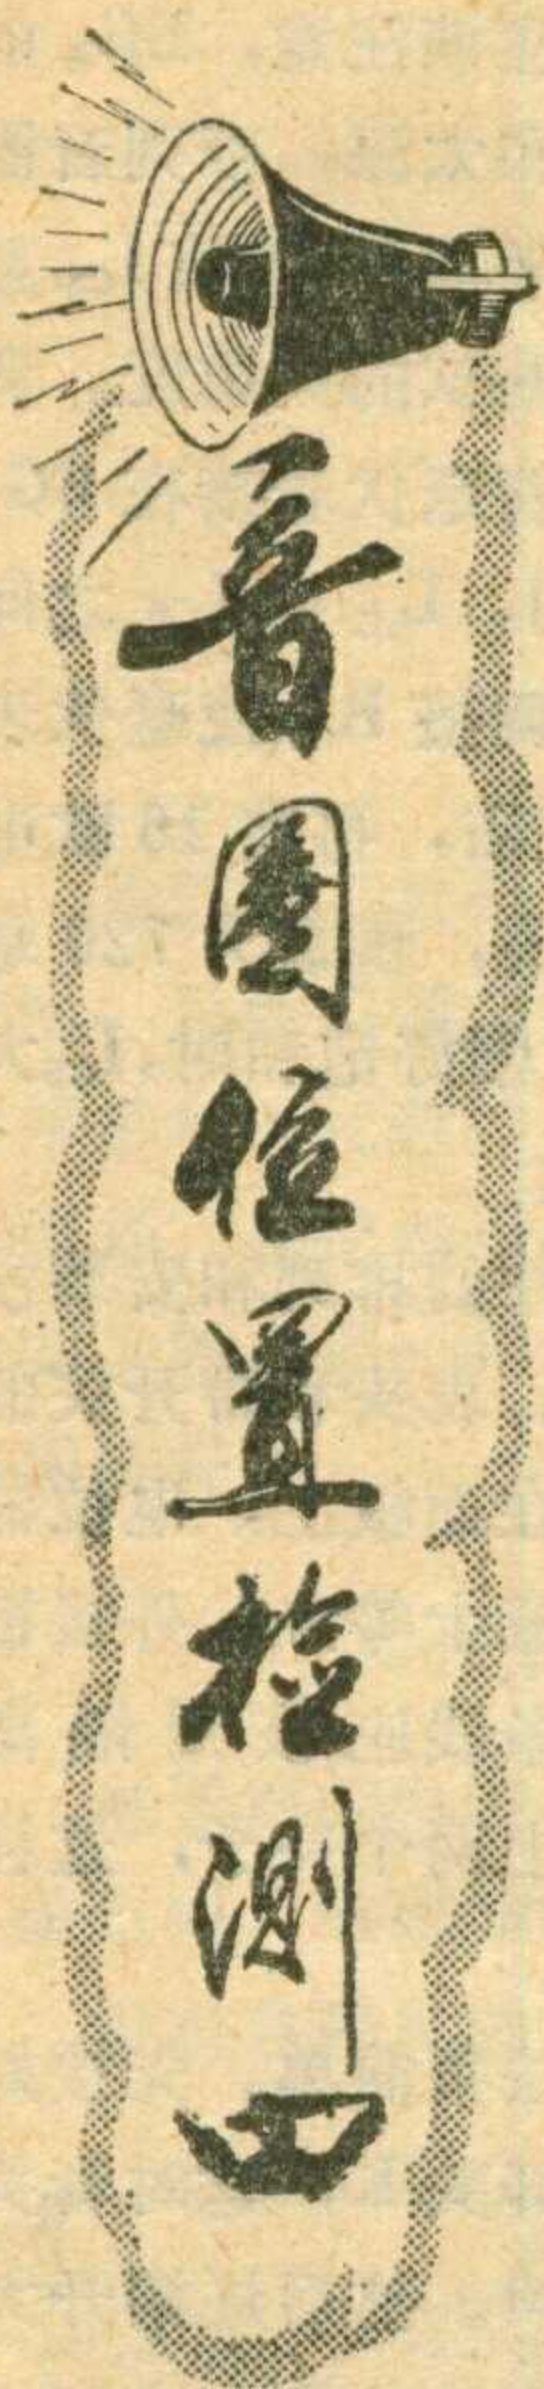 音圈位置检测四